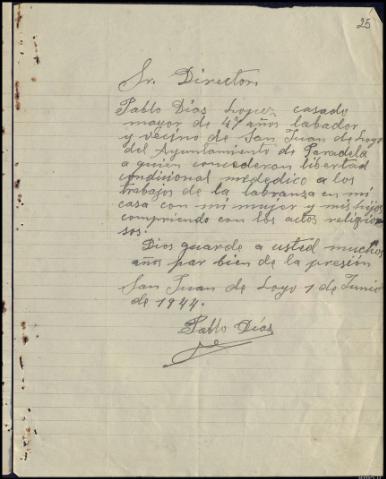 25
Sr. Director
Pablo Días Lopez casado
mayor de 47 años labador
y vecino de San Juan de Loyo
del Ayuntamiento de Paradela
a quien concederan libertad
condicional me dedico a los
trabajos de la labranza en mi
casa con mi mujer y mis hijos
cumpriendo con los actos religio
sos.
Dios guarde a usted muchos
años par bien de la presión
San Juan de Loyo 1 de Junio
de 1944.
Pablo Días